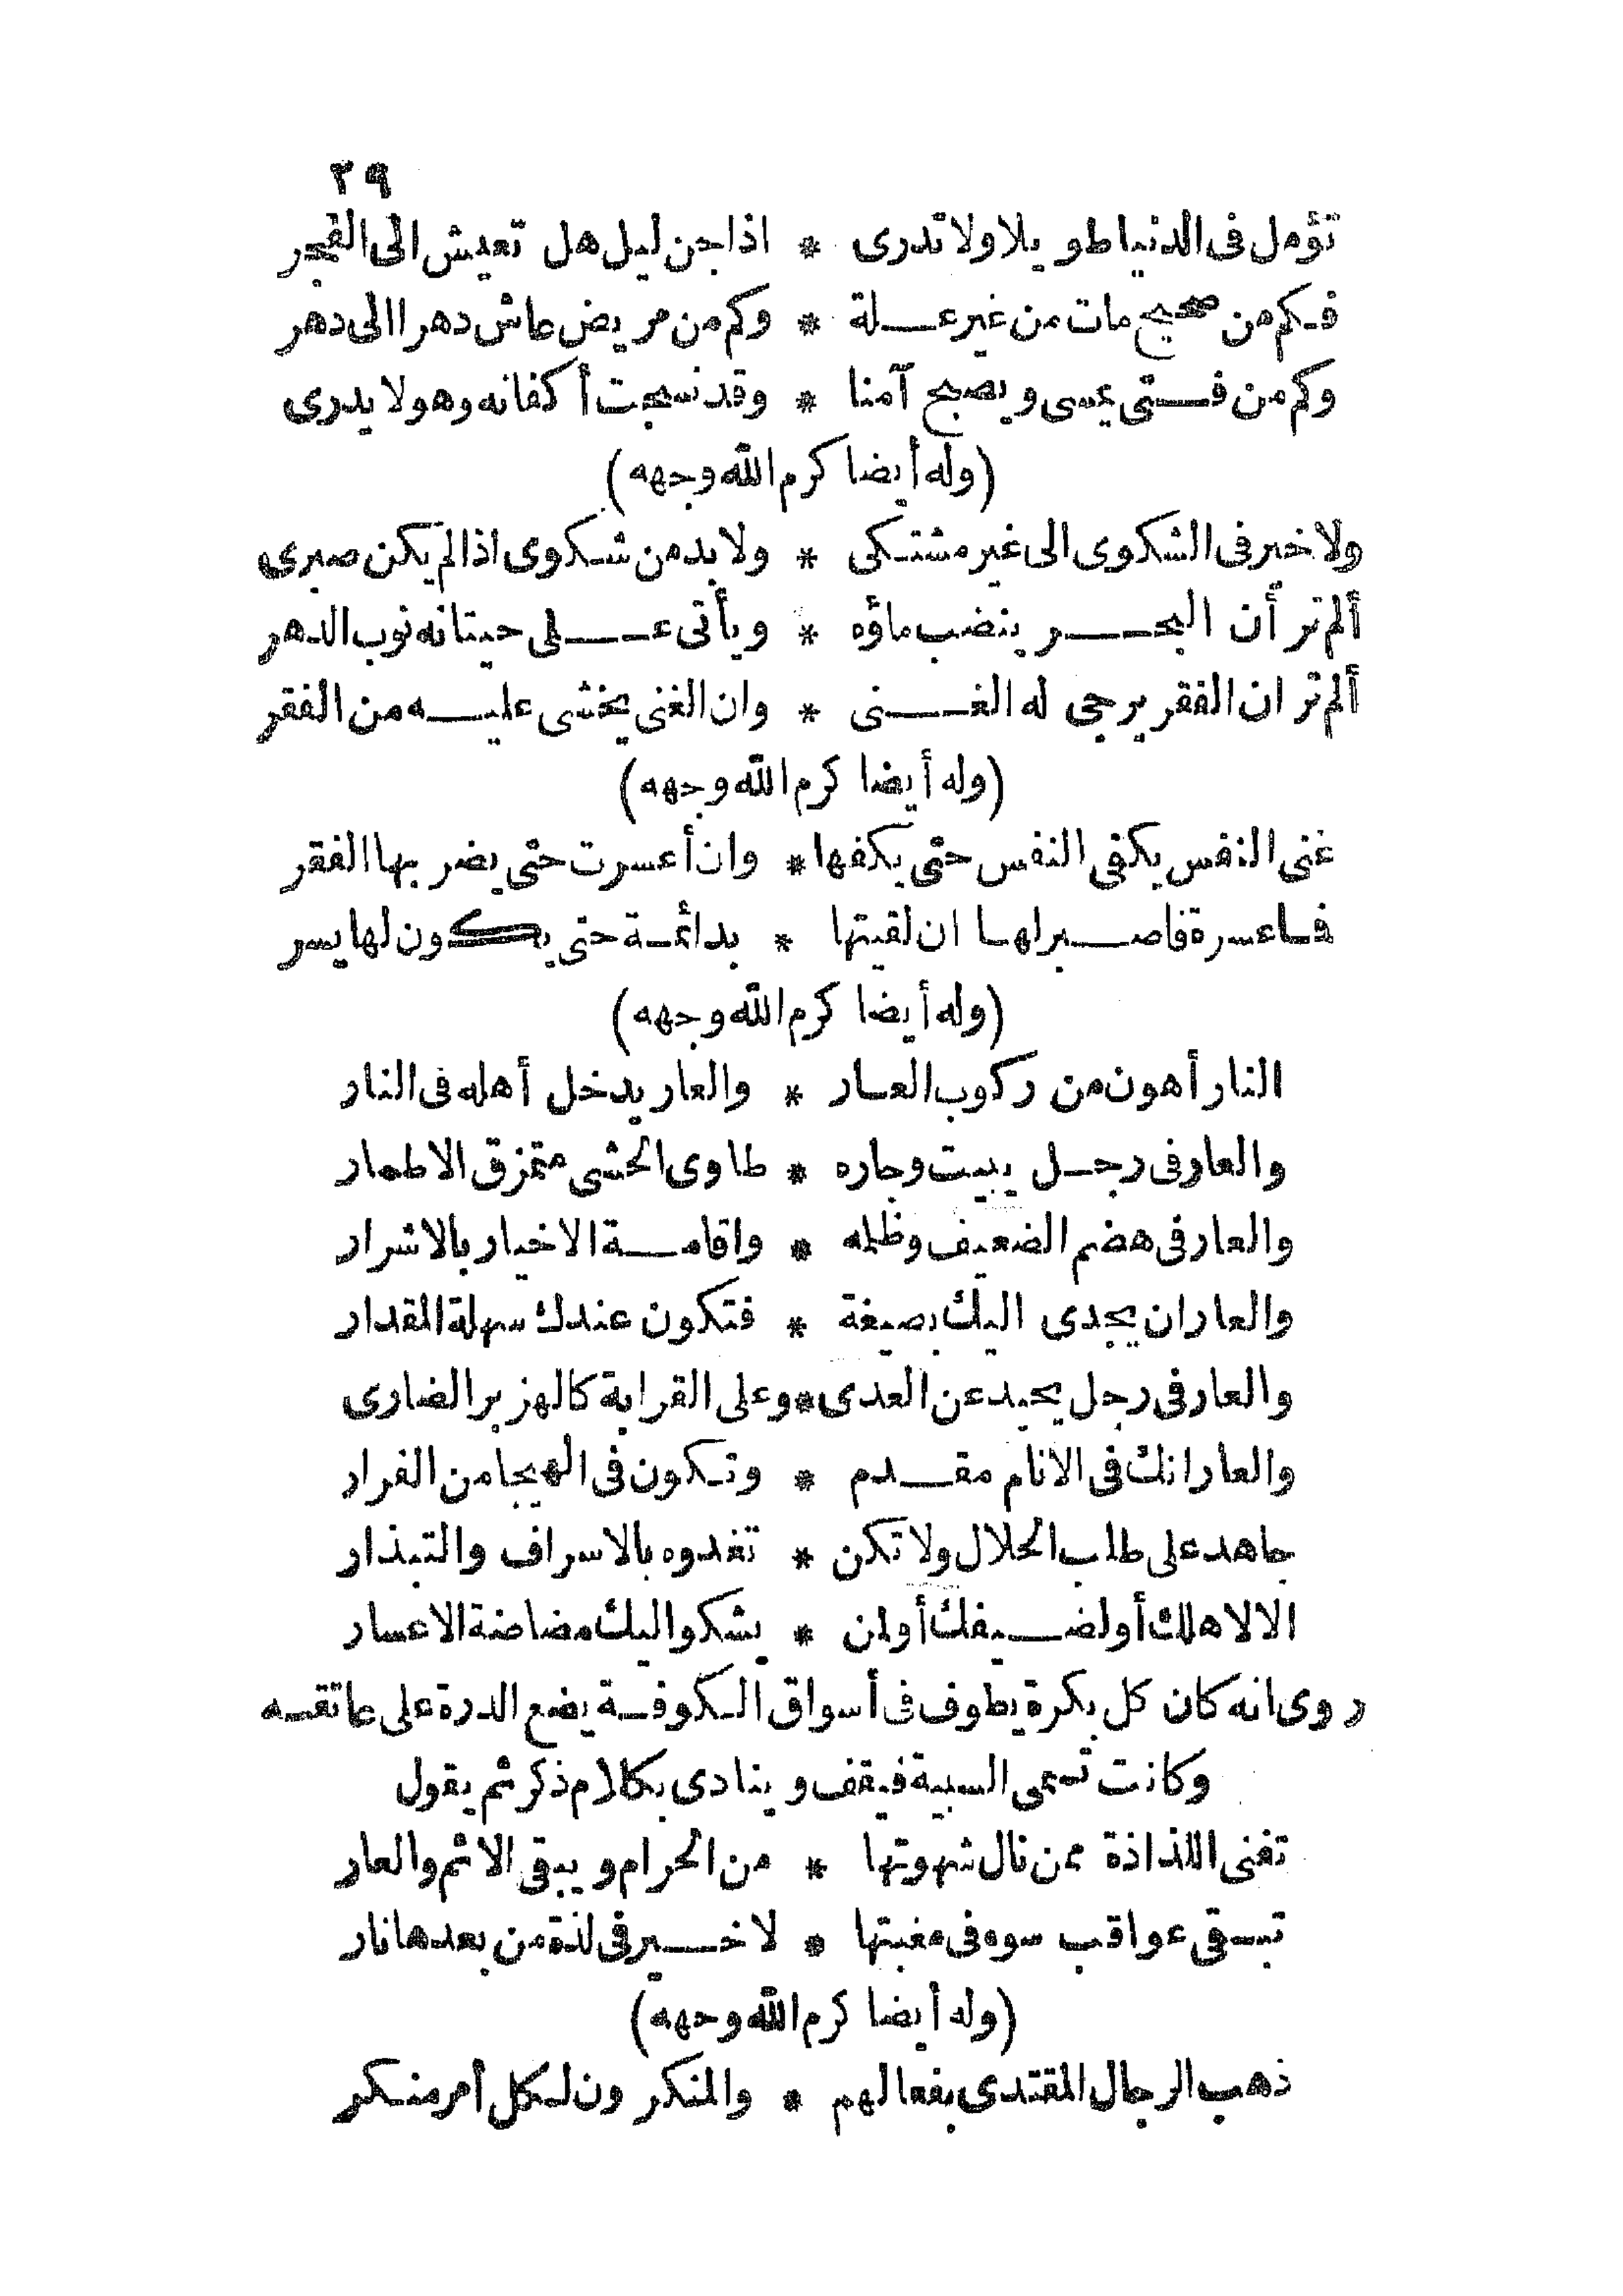 ٢٩
تؤمل فى الدنيا طويلا ولا تدرى * اذا جن ليل هل تعيش الى الفجر
فكم من صحيح مات من غير علة * وكم من مريض عاش دهرا الى دهر
وكم من فتى يمسى ويصبح آمنا * وقد نسجت أكفانه وهو لا يدرى
(وله أيضا كرم الله وجهه)
ولا خير فى الشكوى الى غير مشتكى * ولا بد من شكوى اذا لم يكن صبرى
ألم تر أن البحر ينضب ماؤه * ويأتى على حيتانه نوب الدهر
ألم تر ان الفقر يرجى له الغنى * وان الغنى يخشى عليه من الفقر
(وله أيضا كرم الله وجهه)
غنى النفس يكفى النفس حتى يكفها * وان أعسرت حتى يضر بها الفقر
فما عسرة فاصبر لها ان لقيتها * بدائمة حتى يكون لها يسر
(وله أيضا كرم الله وجهه)
النار أهون من ركوب العار * والعار يدخل أهله فى النار
والعار فى رجل يبيت وجاره * طاوى الحشى متمزق الاطمار
والعار فى هضم الضعيف وظلمه * واقامة الاخيار بالاشرار
والعار ان يجدى اليك بصيغة * فتكون عندك سهلة المقدار
والعار فى رجل يحيد عن العدى * وعلى القرابة كالهزبر الضارى
والعار انك فى الانام مقدم * وتكون فى الهيجا من الفرار
جاهد على طلب الحلال ولا تكن * تغدوه بالاسراف والتبذار
الا لاهلك أو لضيفك أو لمن * يشكو اليك مضاضة الاعسار
روى انه كان كل بكرة يطوف فى أسواق الكوفة يضع الدرة على عاتقه
وكانت تسمى السبية فيقف وينادى بكلام ذكر ثم يقول
تفنى اللذاذة ممن نال شهوتها * من الحرام ويبقى الاثم والعار
تبقى عواقب سوء فى مغبتها * لا خير فى لذة من بعدها نار
(وله أيضا كرم الله وجهه)
ذهب الرجال المقتدى بفعالهم * والمنكرون لكل أمر منكر